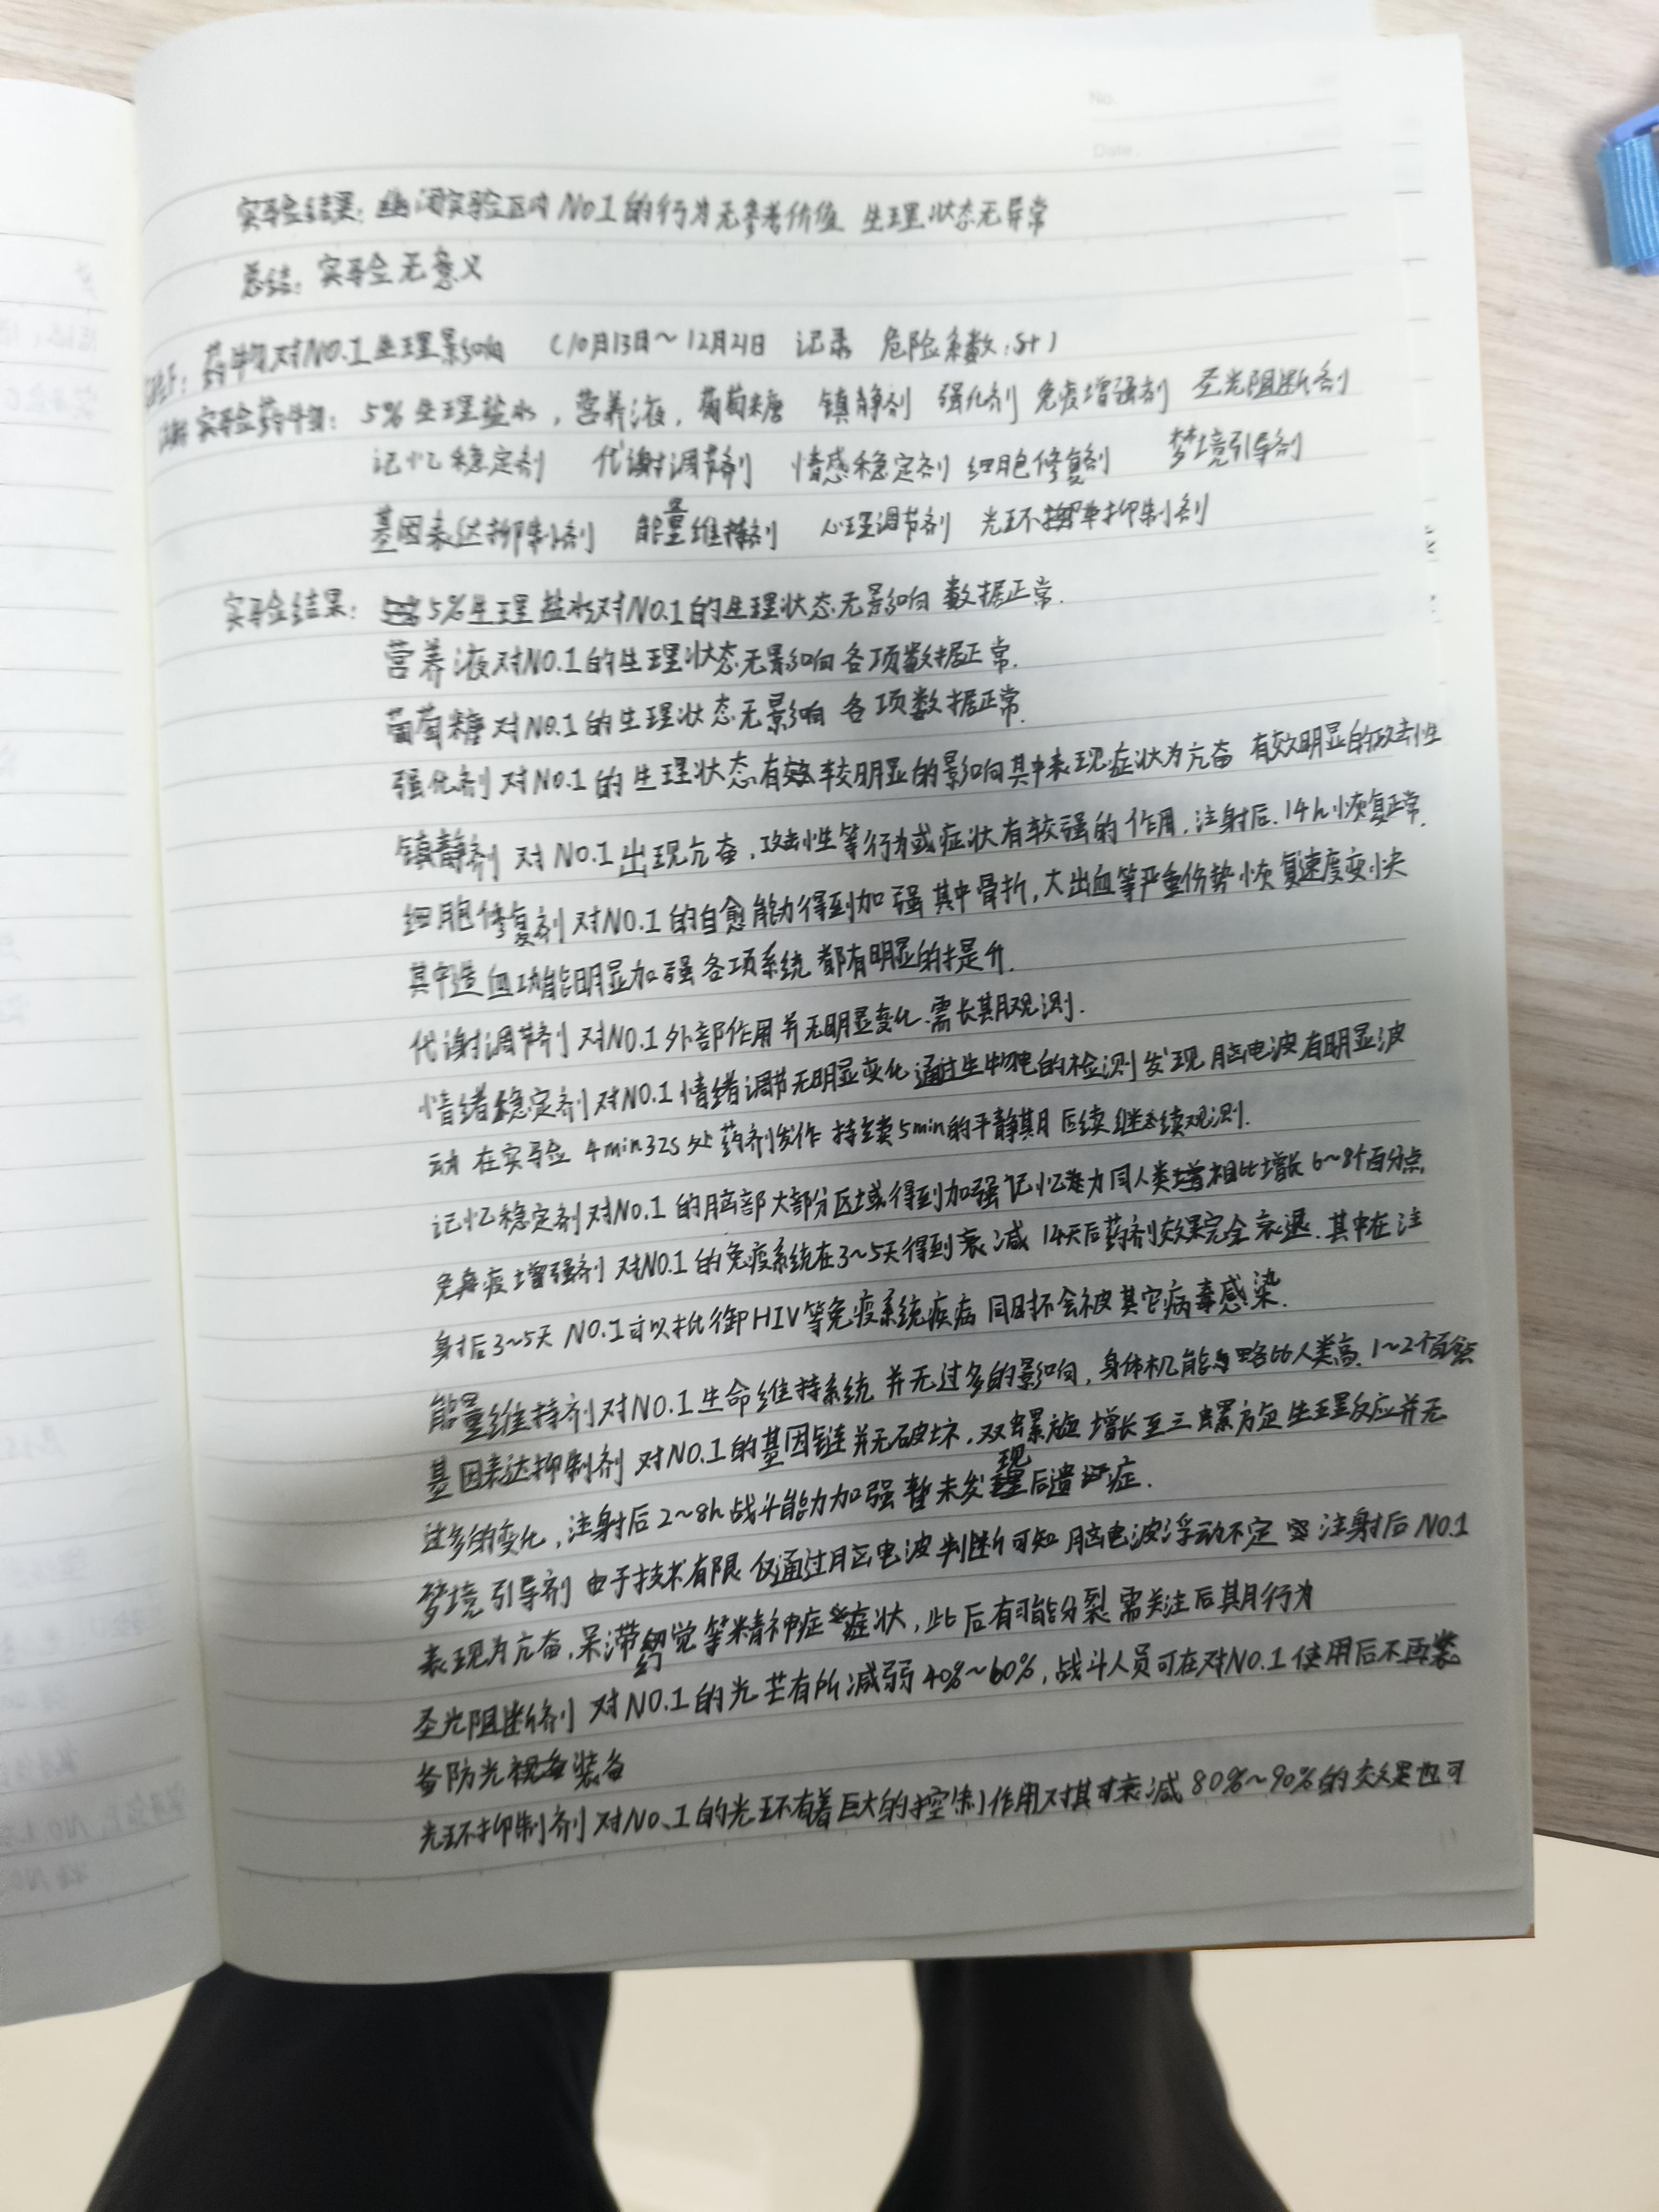 No.
Date.
实验结果：幽闭实验区对No.1的行为无参考价值 生理状态无异常
总结：实验无意义
药物对NO.1生理影响 （10月13日～12月21日 记录 危险系数：S+）
实验药物：5%生理盐水，营养液，葡萄糖 镇静剂 强化剂 免疫增强剂 圣光阻断剂
记忆稳定剂 代谢调节剂 情感稳定剂 细胞修复剂 梦境引导剂
基因表达抑制剂 能量维持剂 心理调节剂 光环抑制剂
实验结果：5%生理盐水对NO.1的生理状态无影响 数据正常.
营养液对NO.1的生理状态无影响 各项数据正常.
葡萄糖对NO.1的生理状态无影响 各项数据正常.
强化剂对NO.1的生理状态有较明显的影响其中表现症状为亢奋 有效明显的攻击性
镇静剂 对NO.1出现亢奋，攻击性等行为或症状有较强的作用，注射后.14h恢复正常.
细胞修复剂对NO.1的自愈能力得到加强 其中骨折，大出血等严重伤势恢复速度变快
其中造血功能明显加强 各项系统都有明显的提升.
代谢调节剂 对NO.1外部作用并无明显变化.需长期观测.
情绪稳定剂对NO.1情绪调节无明显变化 通过生物电的检测发现 脑电波有明显波
动 在实验 4min32s处药剂发作 持续5min的平静期 后续继续观测.
记忆稳定剂对No.1的脑部大部分区域得到加强 记忆能力同人类相比增长6～8个百分点.
免疫增强剂 对NO.1的免疫系统在3～5天得到衰减 14天后药剂效果完全衰退.其中在注
射后3～5天 NO.1可以抵御HIV等免疫系统疾病 同时不会被其它病毒感染.
能量维持剂对NO.1生命维持系统并无过多的影响，身体机能略比人类高.1～2个百分点
基因表达抑制剂 对NO.1的基因链并无破坏，双螺旋增长至三螺旋 生理反应并无
过多的变化，注射后2～8h战斗能力加强 暂未发现后遗症.
梦境引导剂 由于技术有限 仅通过脑电波判断可知 脑电波浮动不定 注射后NO.1
表现为亢奋，呆滞 幻觉等精神症状，此后有可能分裂 需关注后期行为
圣光阻断剂 对NO.1的光芒有所减弱40%～60%，战斗人员可在对NO.1使用后不再装
备防光装备
光环抑制剂对NO.1的光环有着巨大的控制作用对其衰减80%～90%的效果也可